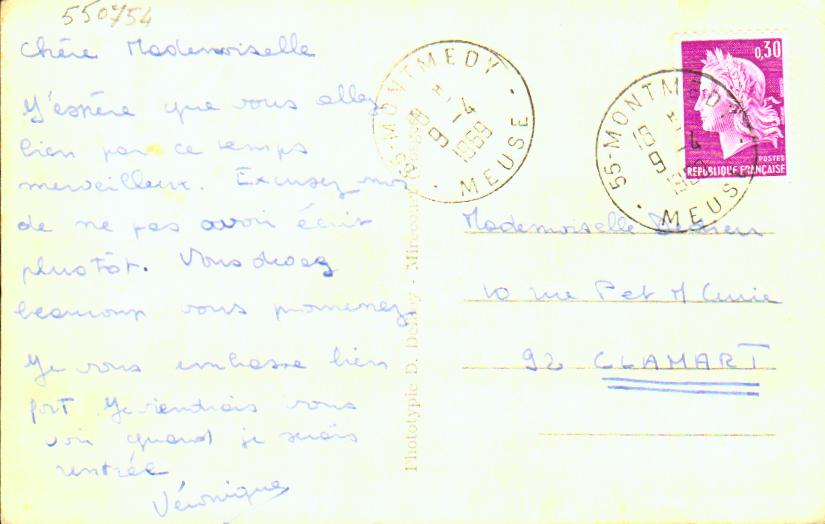 550754
Chère Mademoiselle
J'espère que vous allez
bien par ce temps
merveilleux. Excusez moi
de ne pas avoir écrit
plustôt. Vous devez
beaucoup vous promenez
Je vous embrasse bien
fort Je viendrais vous
voir quand je serais
rentrée
Véronique
Phototypie D. Delboy - Mirecourt
55-MONTMEDY
18 H
9-4
1969
MEUSE
0,30
POSTES
REPUBLIQUE FRANÇAISE
55-MONTMEDY
18 H
9-4
MEUSE
Mademoiselle
10 rue P et M Curie
92 CLAMART